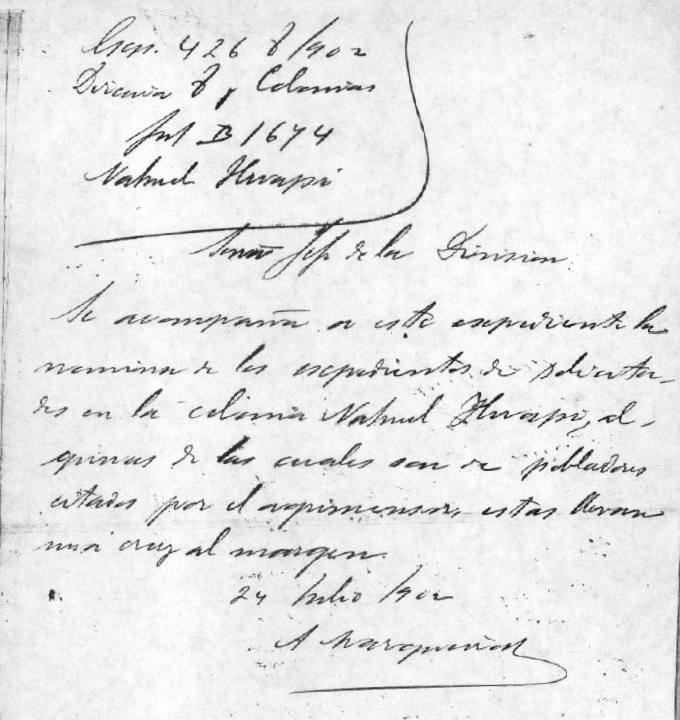 Exp. 426 T/902
Dirección T y Colonias
B 1674
Nahuel Huapi
Señor Jefe de la Division
Se acompaña a este expediente la
nomina de los expedientes de solicitu-
des en la colonia Nahuel Huapi, al-
gunas de las cuales son de pobladores
citados por el agrimensor, estas llevan
una cruz al margen.
24 Julio 902
A